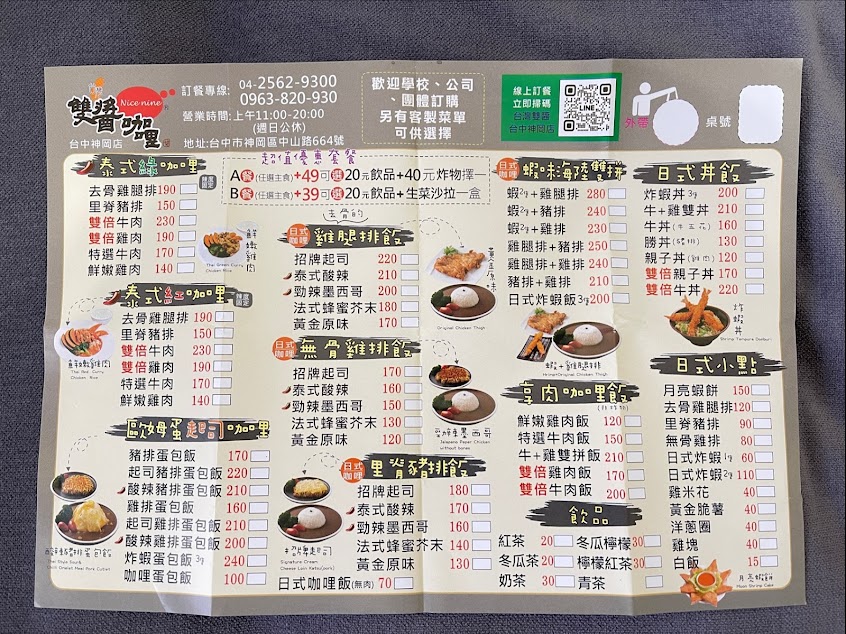 雙醬咖哩
Nice nine
台中神岡店
訂餐專線: 04-2562-9300
0963-820-930
營業時間:上午11:00-20:00
(週日公休)
地址:台中市神岡區中山路664號
歡迎學校、公司
、團體訂購
另有客製菜單
可供選擇
線上訂餐
立即掃碼
台灣雙醬
台中神岡店
LINE
外帶
桌號
超值優惠套餐
A餐(任選主食)+49可選20元飲品+40元炸物擇一
B餐(任選主食)+39可選20元飲品+生菜沙拉一盒
泰式綠咖哩
辣度固定
去骨雞腿排190
里脊豬排150
雙倍牛肉230
雙倍雞肉190
特選牛肉170
鮮嫩雞肉140
鮮嫩雞肉
Thai Green Curry
Chicken Rice
泰式紅咖哩
辣度固定
去骨雞腿排190
里脊豬排150
雙倍牛肉230
雙倍雞肉190
特選牛肉170
鮮嫩雞肉140
鮮嫩雞肉
Thai Red Curry
Chicken Rice
歐姆蛋起司咖哩
豬排蛋包飯170
起司豬排蛋包飯220
酸辣豬排蛋包飯210
雞排蛋包飯160
起司雞排蛋包飯210
酸辣雞排蛋包飯200
炸蝦蛋包飯3隻240
咖哩蛋包飯100
酸辣豬排蛋包飯
去骨的
日式咖哩
雞腿排飯
招牌起司220
泰式酸辣210
勁辣墨西哥200
法式蜂蜜芥末180
黃金原味170
黃金原味
Original Chicken Thigh
日式咖哩
無骨雞排飯
招牌起司170
泰式酸辣160
勁辣墨西哥150
法式蜂蜜芥末130
黃金原味120
勁辣墨西哥
Jalapeno Paper Chicken
without bones
日式咖哩
里脊豬排飯
招牌起司180
泰式酸辣170
勁辣墨西哥160
法式蜂蜜芥末140
黃金原味130
日式咖哩飯(無肉)70
招牌起司
Signature Cream
Cheese Loin Katsu(pork)
日式咖哩
蝦味海陸雙拼
蝦2隻+雞腿排280
蝦2隻+豬排240
蝦2隻+雞排230
雞腿排+豬排250
雞腿排+雞排240
豬排+雞排210
日式炸蝦飯3隻200
蝦+雞腿排
享肉咖哩飯
鮮嫩雞肉飯120
特選牛肉飯150
牛+雞雙拼飯210
雙倍雞肉飯170
雙倍牛肉飯200
飲品
紅茶20
冬瓜茶20
奶茶30
冬瓜檸檬30
檸檬紅茶30
青茶
日式丼飯
炸蝦丼3隻200
牛+雞雙丼210
牛丼(牛五花)160
勝丼(豬排)130
親子丼(雞肉)120
雙倍親子丼170
雙倍牛丼220
炸蝦丼
Shrimp Tempura Donburi
日式小點
月亮蝦餅150
去骨雞腿排120
里脊豬排90
無骨雞排80
日式炸蝦1隻60
日式炸蝦2隻110
雞米花40
黃金脆薯40
洋蔥圈40
雞塊40
白飯15
月亮蝦餅
Moon Shrimp Cake